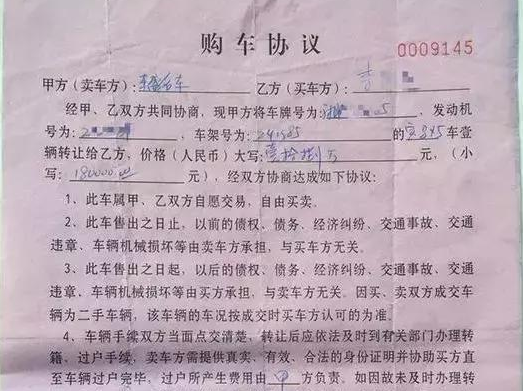 购车协议
0009145
甲方（卖车方）： 乙方（买车方）：
经甲、乙双方共同协商，现甲方将车牌号为： 05，发动机
号为： ，车架号为：241985 的宝845车壹
辆转让给乙方，价格（人民币）大写：壹拾捌万元，（小
写：180000.00元），经双方协商达成如下协议：
1、此车属甲、乙双方自愿交易，自由买卖。
2、此车售出之日止，以前的债权、债务、经济纠纷、交通事故、交通
违章、车辆机械损坏等由卖车方承担，与买车方无关。
3、此车售出之日起，以后的债权、债务、经济纠纷、交通事故、交通
违章、车辆机械损坏等由买方承担，与卖车方无关。因买、卖双方成交车
辆为二手车辆，该车辆的车况按成交时买车方认可的为准。
4、车辆手续双方当面点交清楚，转让后应依法及时到有关部门办理转
籍、过户手续，卖车方需提供真实、有效、合法的身份证明并协助买车方直
至车辆过户完毕，过户所产生费用由 甲 方负责，如因故未及时办理转